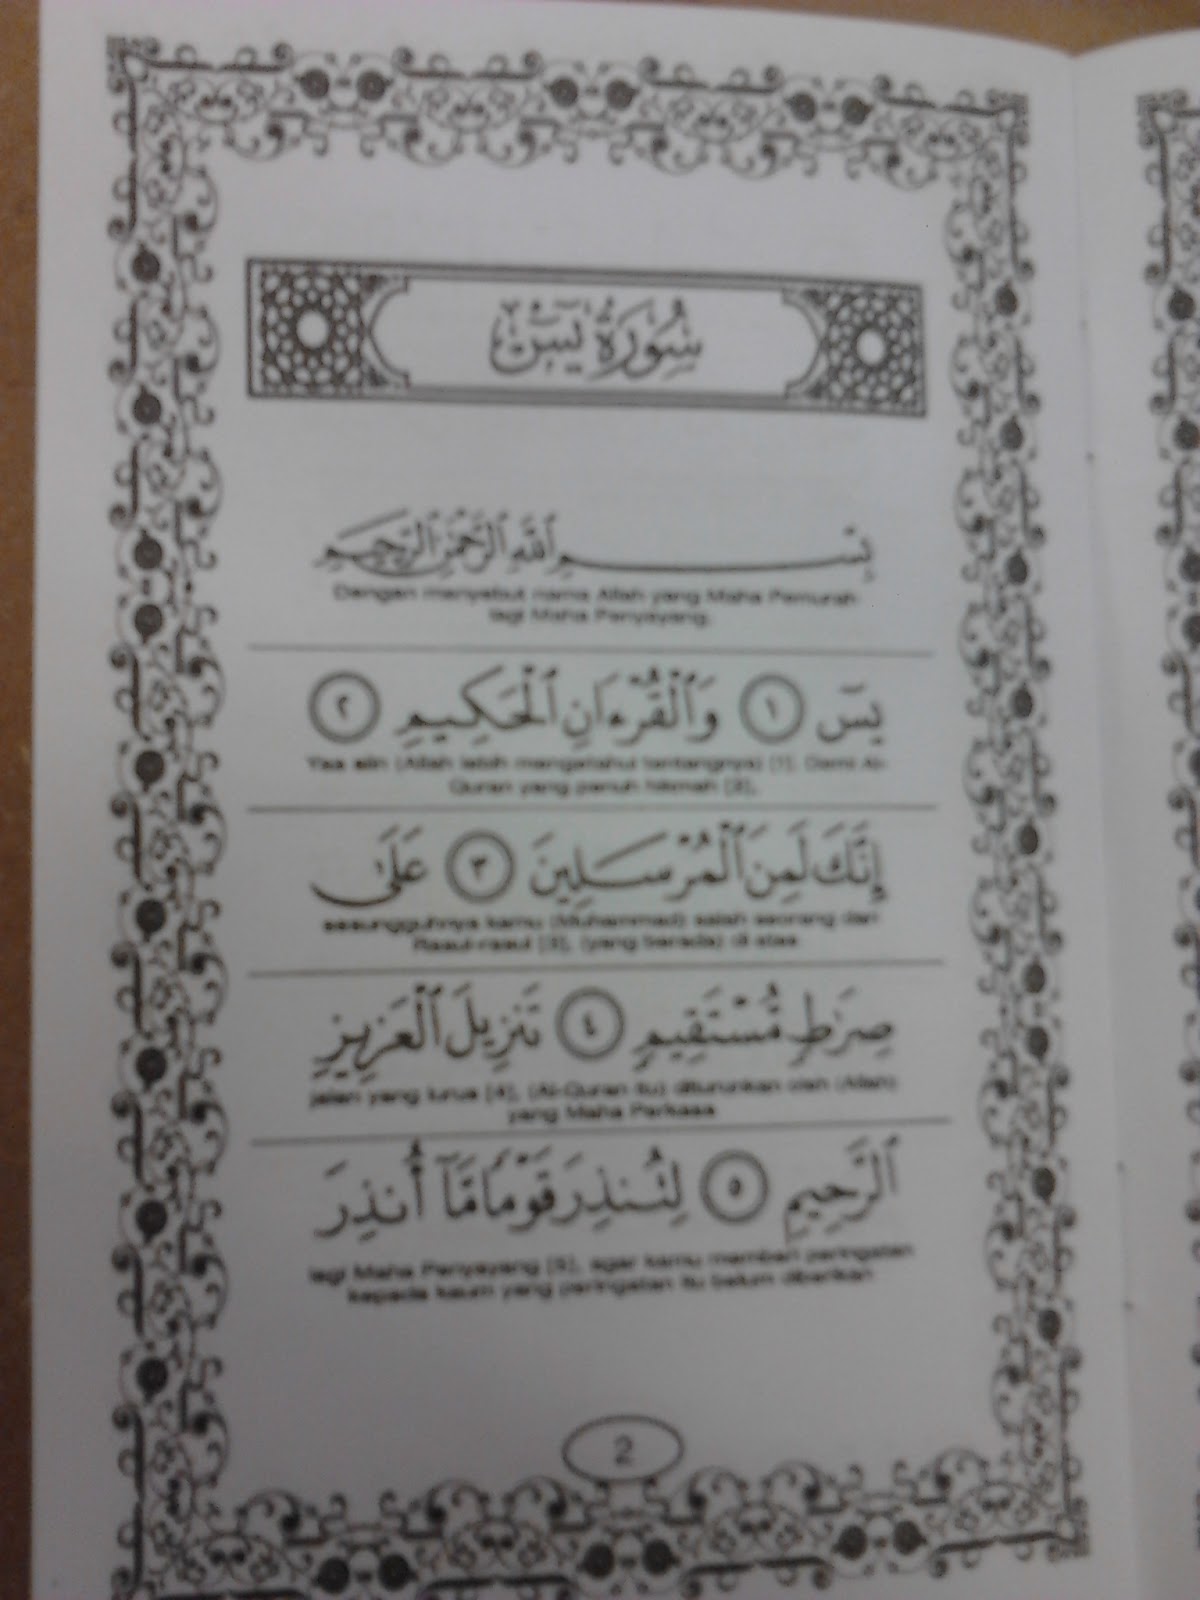 سُورَةُ يسٓ
بِسْمِ ٱللَّهِ ٱلرَّحْمَٰنِ ٱلرَّحِيمِ
Dengan menyebut nama Allah yang Maha Pemurah
lagi Maha Penyayang.
يسٓ ١ وَٱلْقُرْءَانِ ٱلْحَكِيمِ ٢
Yaa siin (Allah lebih mengetahui tentangnya) [1]. Demi Al-
Quran yang penuh hikmah [2],
إِنَّكَ لَمِنَ ٱلْمُرْسَلِينَ ٣ عَلَىٰ
sesungguhnya kamu (Muhammad) salah seorang dari
Rasul-rasul [3], (yang berada) di atas
صِرَٰطٍ مُّسْتَقِيمٍ ٤ تَنزِيلَ ٱلْعَزِيزِ
jalan yang lurus [4], (Al-Quran itu) diturunkan oleh (Allah)
yang Maha Perkasa
ٱلرَّحِيمِ ٥ لِتُنذِرَ قَوْمًا مَّآ أُنذِرَ
lagi Maha Penyayang [5], agar kamu memberi peringatan
kepada kaum yang peringatan itu belum diberikan
2